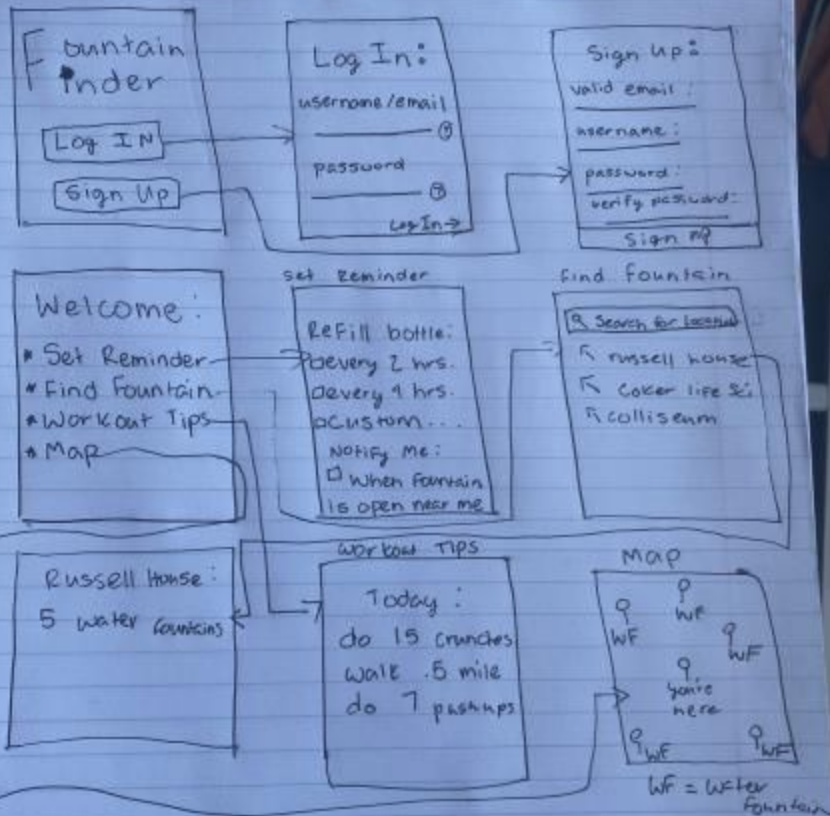 Fountain
Finder
Log IN
Sign Up
Log In:
username/email
password
Log In →
Sign Up:
valid email:
username:
password:
verify password:
Sign up
Welcome:
* Set Reminder
* Find Fountain
* Workout Tips
* Map
Set Reminder
Refill bottle:
every 2 hrs.
every 4 hrs.
custom...
Notify Me:
□ When fountain
is open near me
Find Fountain
Search for location
russell house
coker life sci
colliseum
Russell House:
5 water fountains
Workout Tips
Today:
do 15 crunches
walk .5 mile
do 7 pushups
Map
WF
WF
WF
you're
here
WF
WF
WF = Water
Fountain